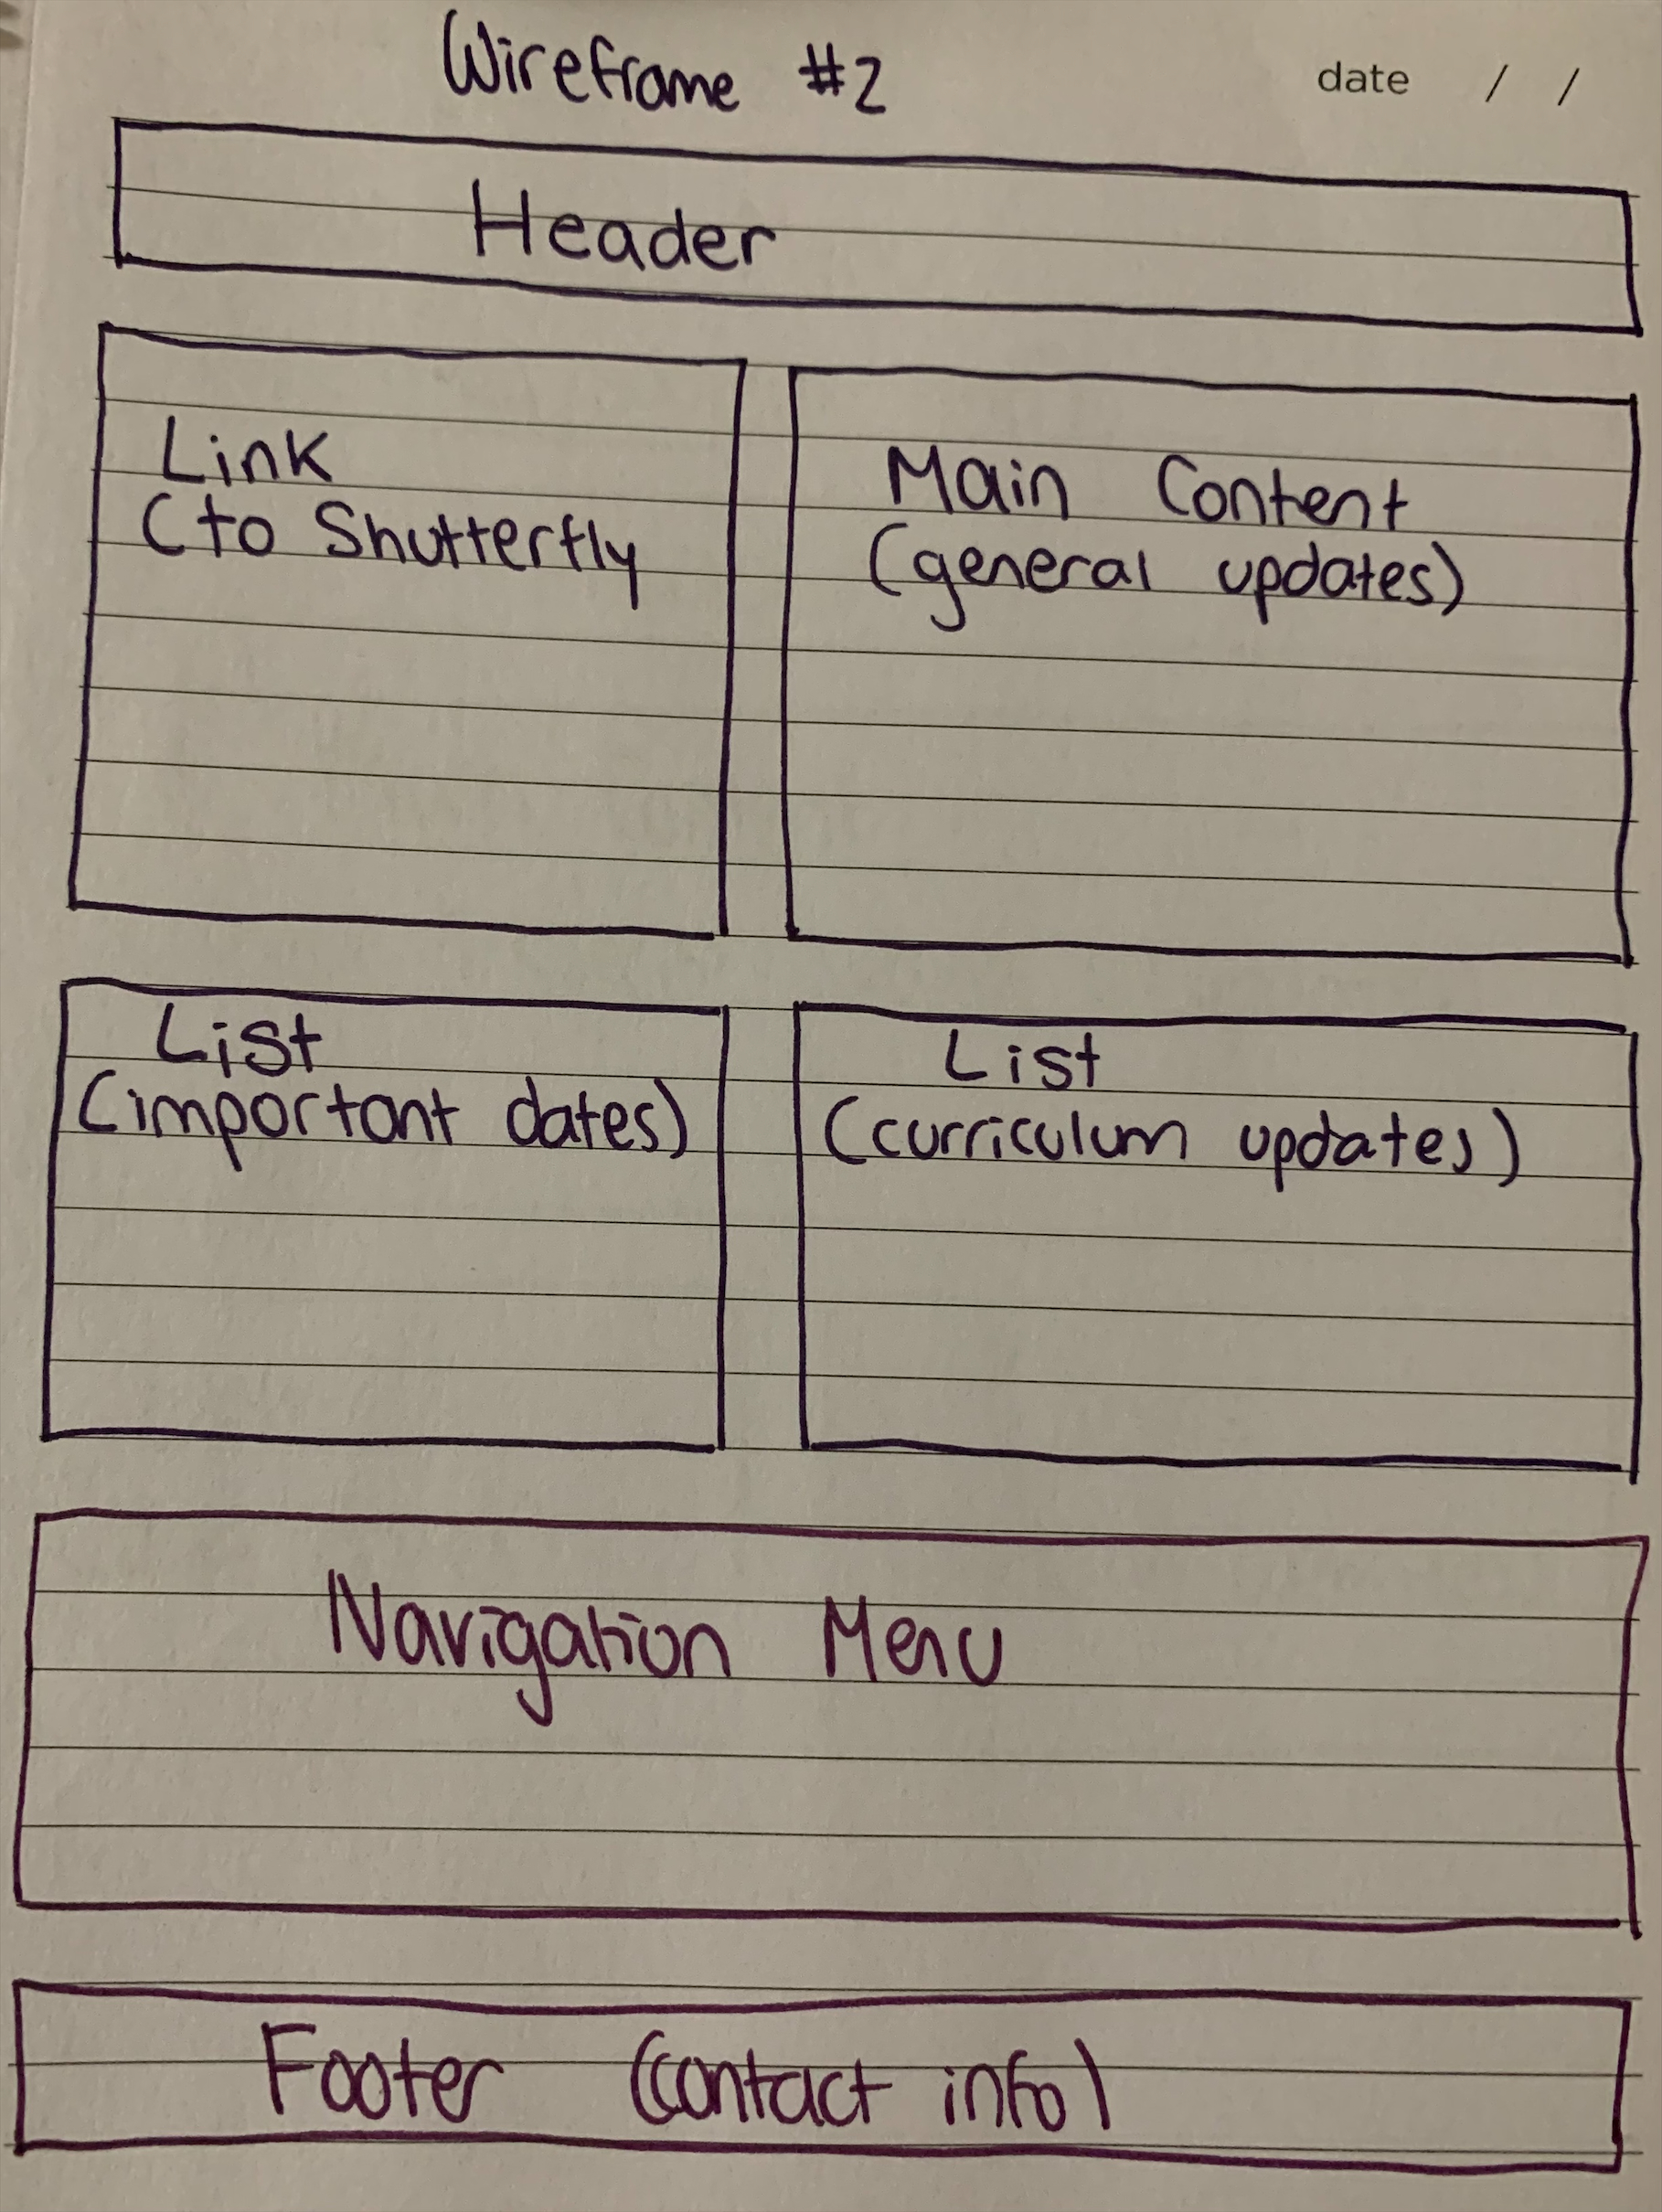 Wireframe #2
date / /
Header
Link
(to Shutterfly
Main Content
(general updates)
List
(important dates)
List
(curriculum updates)
Navigation Menu
Footer (contact info)